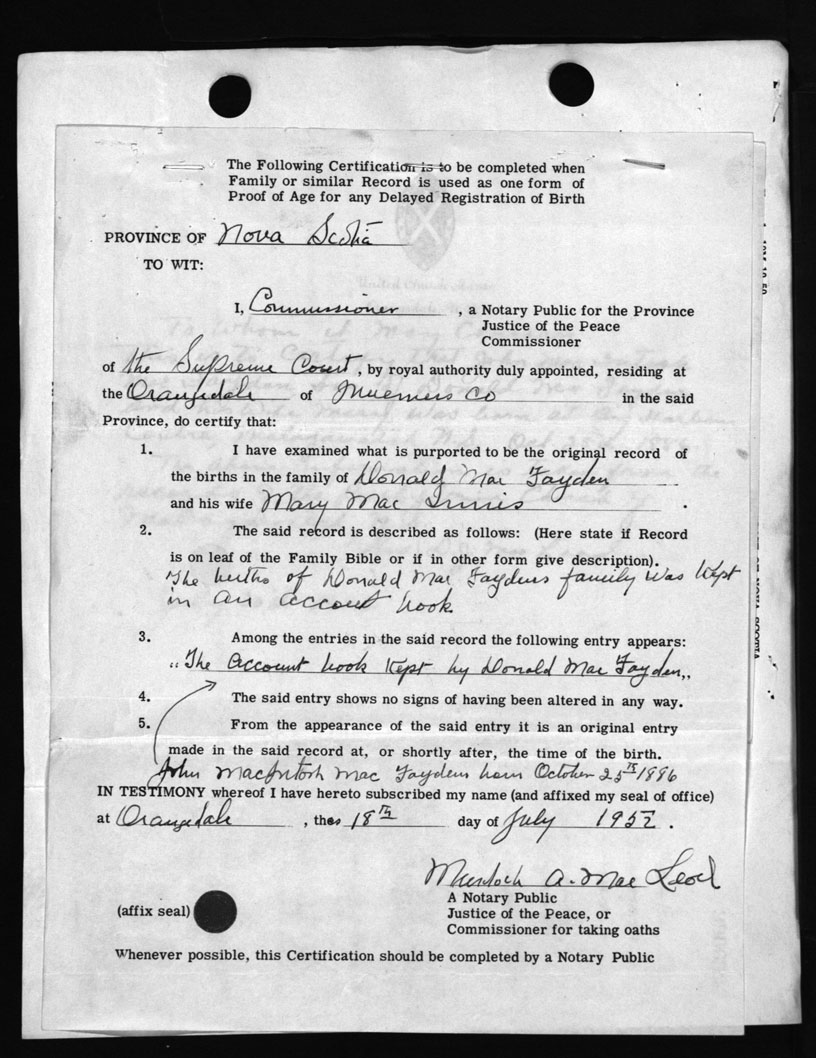 The Following Certification is to be completed when
Family or similar Record is used as one form of
Proof of Age for any Delayed Registration of Birth
PROVINCE OF Nova Scotia
TO WIT:
I, Commissioner , a Notary Public for the Province
Justice of the Peace
Commissioner
of the Supreme Court , by royal authority duly appointed, residing at
the Orangedale of Inverness Co in the said
Province, do certify that:
1. I have examined what is purported to be the original record of
the births in the family of Donald Mac Fayden
and his wife Mary Mac Innis .
2. The said record is described as follows: (Here state if Record
is on leaf of the Family Bible or if in other form give description).
The births of Donald Mac Faydens family was kept
in an account book
3. Among the entries in the said record the following entry appears:
"The account book kept by Donald Mac Fayden"
4. The said entry shows no signs of having been altered in any way.
5. From the appearance of the said entry it is an original entry
made in the said record at, or shortly after, the time of the birth.
John MacIntosh Mac Faydens born October 25th 1886
IN TESTIMONY whereof I have hereto subscribed my name (and affixed my seal of office)
at Orangedale , the 18th day of July 1952 .
Murdoch A. Mac Leod
A Notary Public
(affix seal) Justice of the Peace, or
Commissioner for taking oaths
Whenever possible, this Certification should be completed by a Notary Public